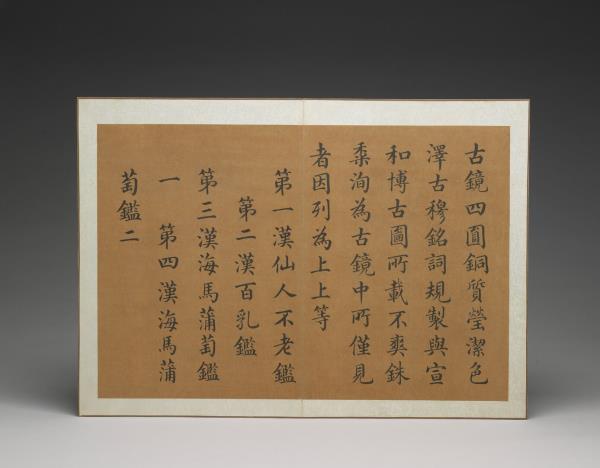 古鏡四圓銅質瑩潔色
澤古穆銘詞規製與宣
和博古圖所載不爽銖
絫洵為古鏡中所僅見
者因列為上上等
第一漢仙人不老鑑
第二漢百乳鑑
第三漢海馬蒲萄鑑
一　第四漢海馬蒲
萄鑑二